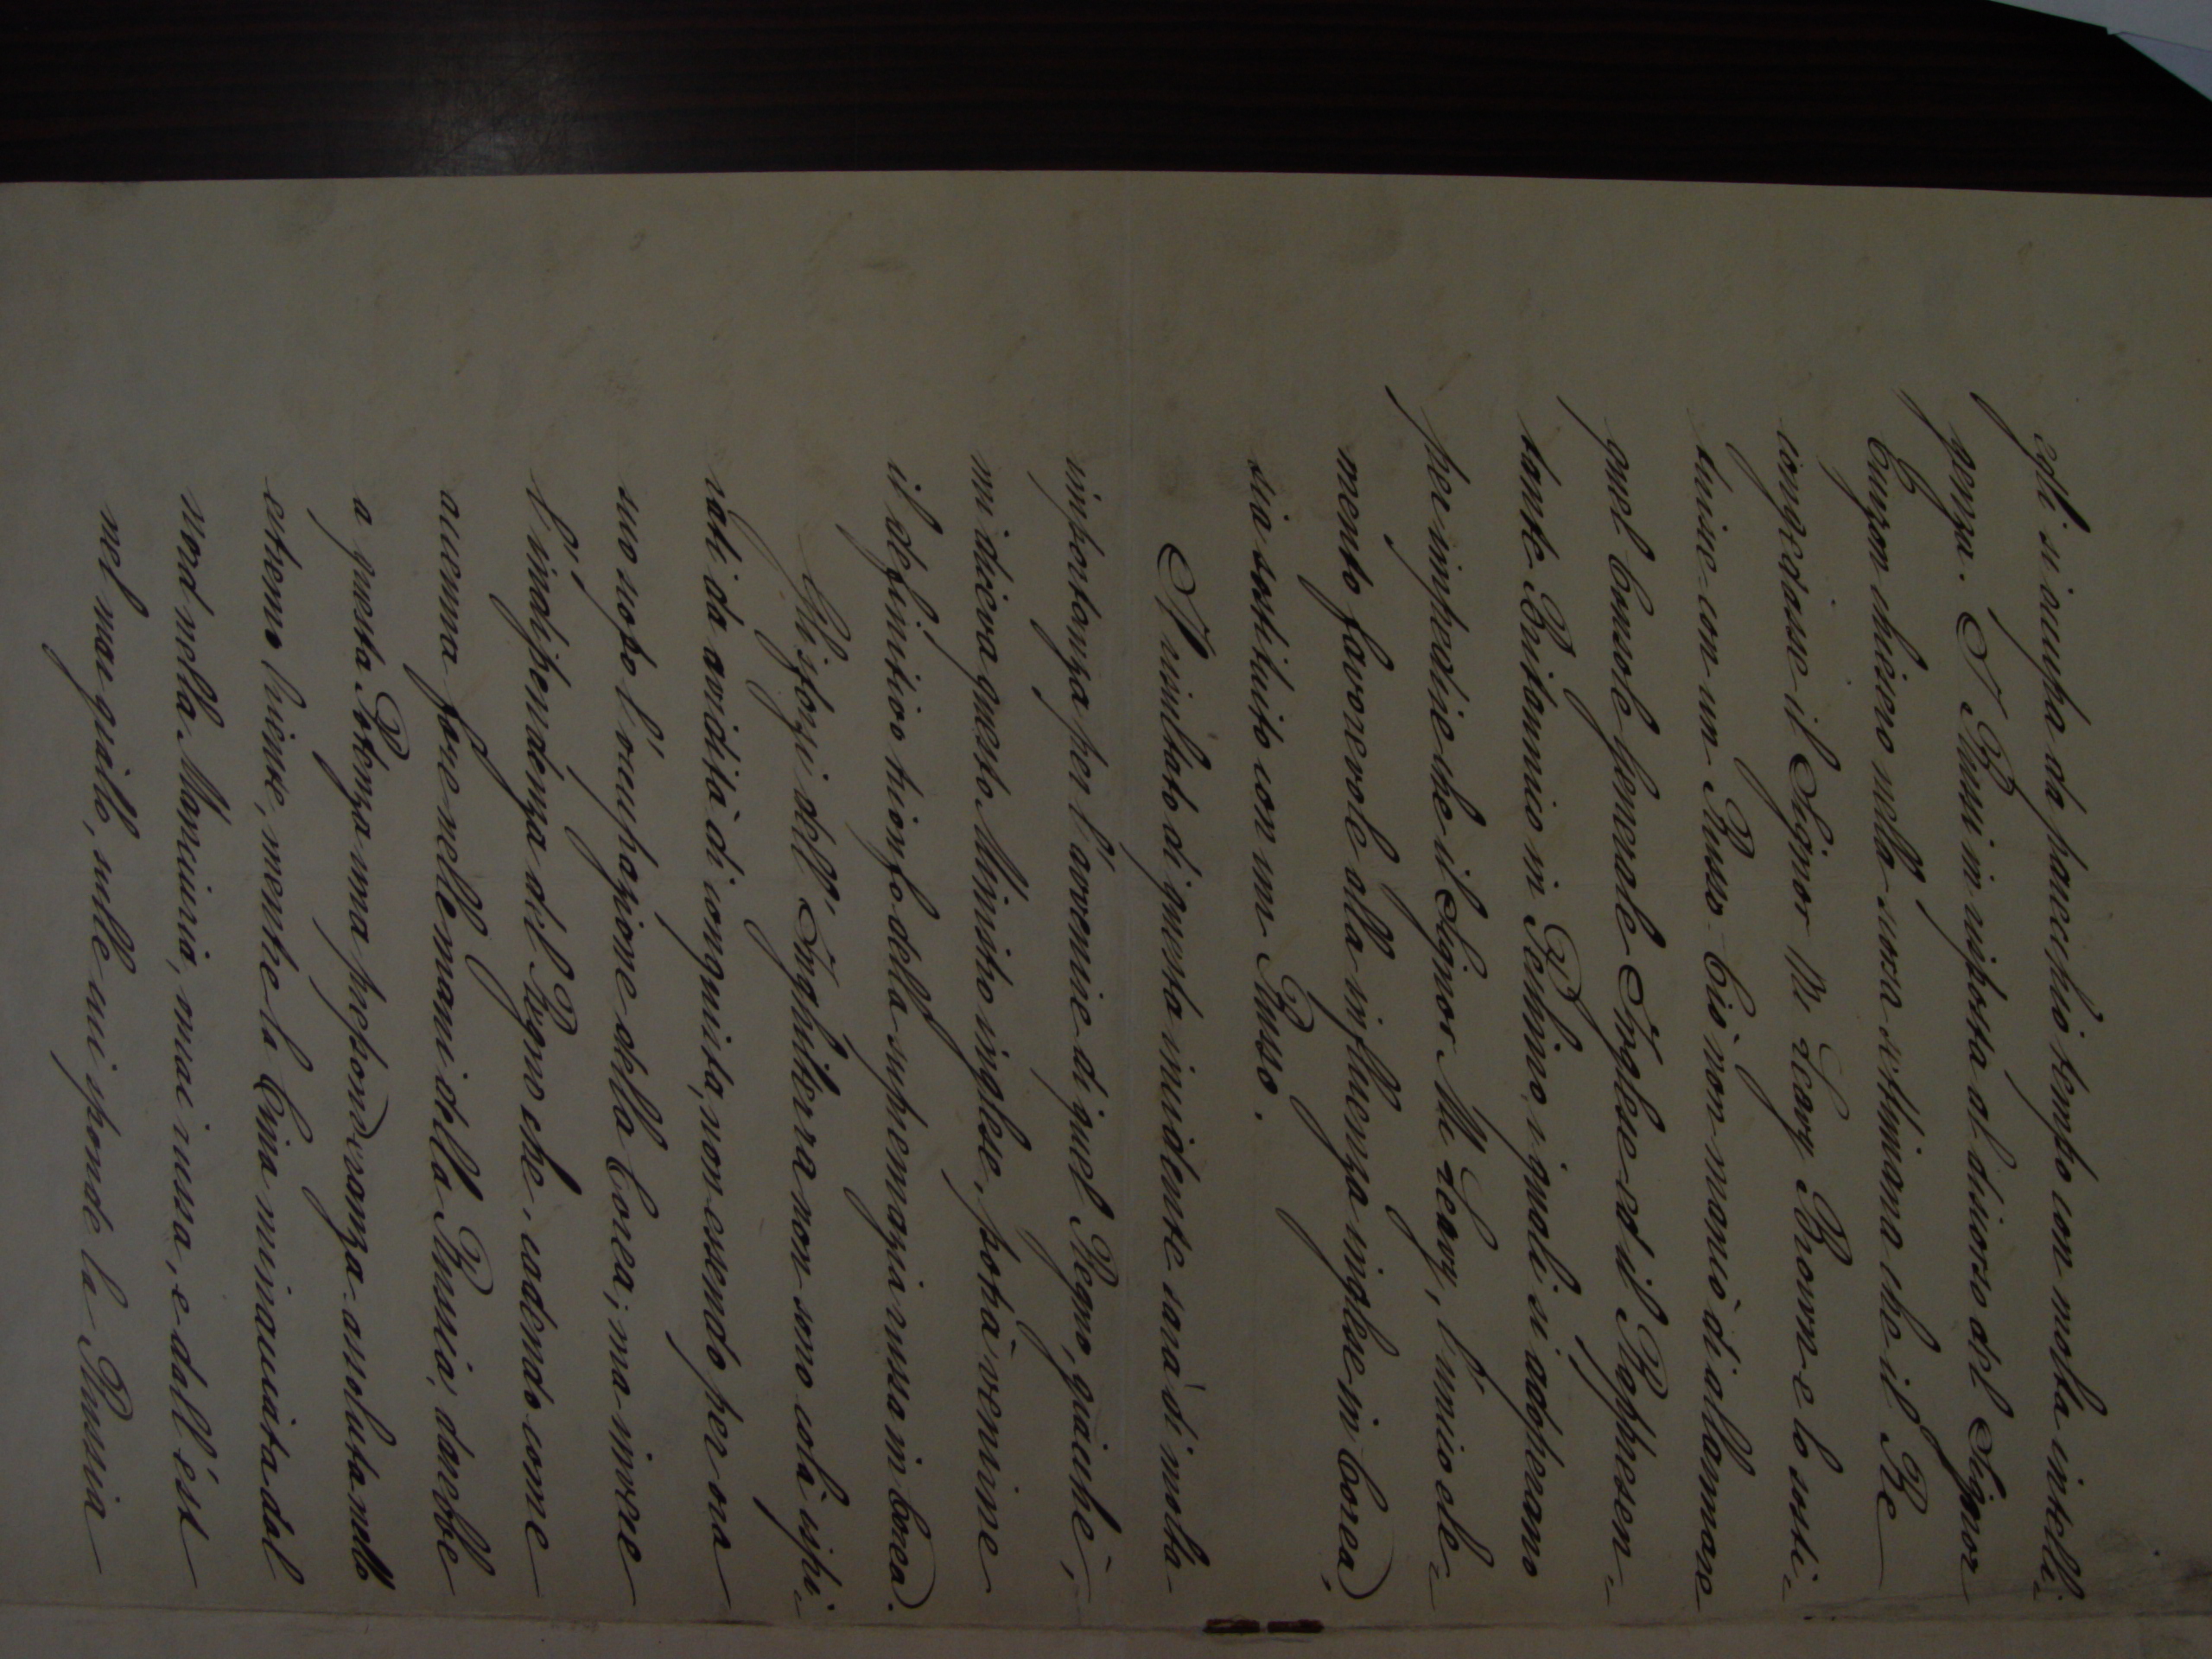 egli si occupa da parecchio tempo con molta intelli-
genza. I Russi in risposta al discorso del Signor
Curzon chiesero nella scorsa settimana che il Re
congedasse il Signor Mc Leavy Brown e lo sosti-
tuisse con un Russo. Ciò non mancò di allarmare
quel Console Generale Inglese ed il Rappresen-
tante Britannico in Pechino, i quali si adoperano
per impedire che il Signor Mc Leavy, l'unico ele-
mento favorevole alla influenza inglese in Corea,
sia sostituito con un Russo.
Il risultato di questo incidente sarà di molta
importanza per l'avvenire di quel Regno, giacchè,
mi diceva questo Ministro inglese, potrà venirne
il definitivo trionfo della supremazia russa in Corea.
Gli sforzi dell'Inghilterra non sono colà ispi-
rati da avidità di conquista, non essendo per ora
suo scopo l'occupazione della Corea; ma invece
l'indipendenza del Regno che, cadendo come
accenna fare nelle mani della Russia, darebbe
a questa Potenza una preponderanza assoluta nello
estremo Oriente, mentre la Cina minacciata dal
nord nella Manciuria, quasi russa, e dall'est
nel mar giallo, sulle cui sponde la Russia